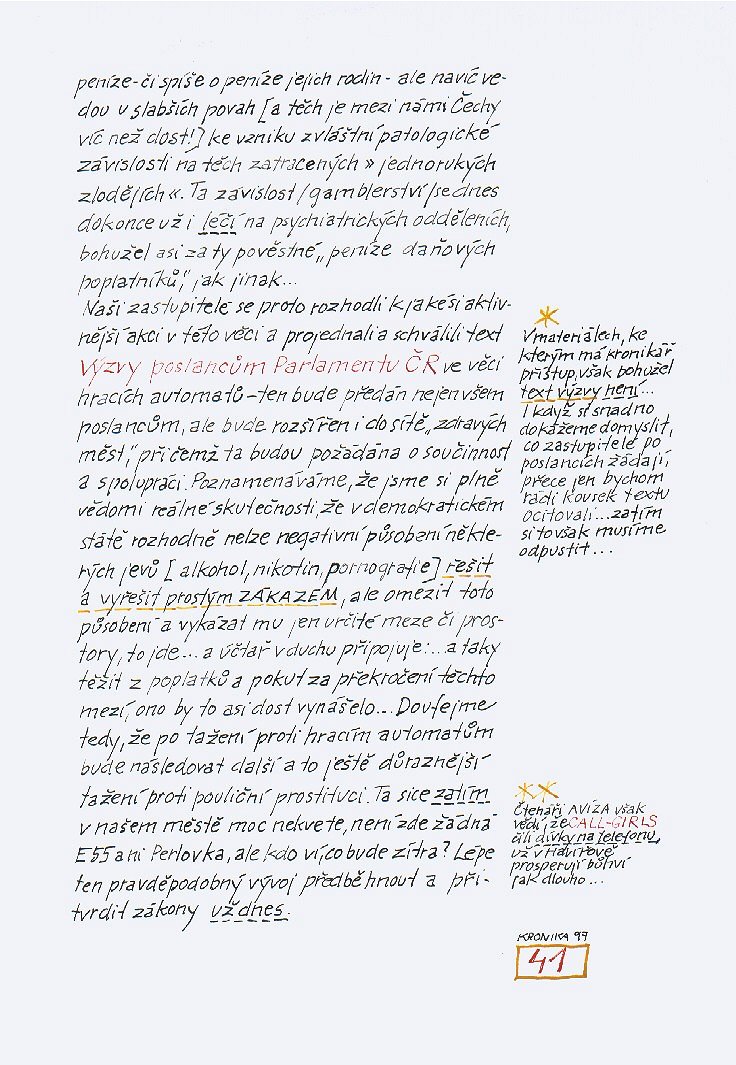 peníze - či spíše o peníze jejich rodin - ale navíc ve-
dou u slabších povah [a těch je mezi námi Čechy
víc než dost!] ke vzniku zvláštní patologické
závislosti na těch zatracených » jednorukých
zlodějích «. Ta závislost /gamblerství/ se dnes
dokonce už i léčí na psychiatrických odděleních,
bohužel asi za ty pověstné „peníze daňových
poplatníků", jak jinak...
Naši zastupitelé se proto rozhodli k jakési aktiv-
nější akci v této věci a projednali a schválili text
Výzvy poslancům Parlamentu ČR ve věci
hracích automatů - ten bude předán nejen všem
poslancům, ale bude rozšířen i do sítě „zdravých
měst", při čemž ta budou požádána o součinnost
a spolupráci. Poznamenáváme, že jsme si plně
vědomi reálné skutečnosti, že v demokratickém
státě rozhodně nelze negativní působení někte-
rých jevů [alkohol, nikotin, pornografie] řešit
a vyřešit prostým ZÁKAZEM, ale omezit toto
působení a vykázat mu jen určité meze či pros-
tory, to jde... a účtař v duchu připojuje:...a taky
těžit z poplatků a pokut za překročení těchto
mezí, ono by to asi dost vynášelo... Doufejme
tedy, že po tažení proti hracím automatům
bude následovat další a to ještě důraznější
tažení proti pouliční prostituci. Ta sice zatím
v našem městě moc nekvete, není zde žádná
E55 ani Perlovka, ale kdo ví, co bude zítra? Lépe
ten pravděpodobný vývoj předběhnout a při-
tvrdit zákony už dnes.
*
V materiálech, ke
kterým má kronikář
přístup, však bohužel
text výzvy není...
I když si snadno
dokážeme domyslit,
co zastupitelé po
poslancích žádají,
přece jen bychom
rádi kousek textu
ocitovali...zatím
si to však musíme
odpustit...
**
Čtenáři AVÍZA však
vědí, že CALL-GIRLS
čili dívky na telefonu,
už v Havířově
prosperují bůhví
jak dlouho...
KRONIKA 99
41